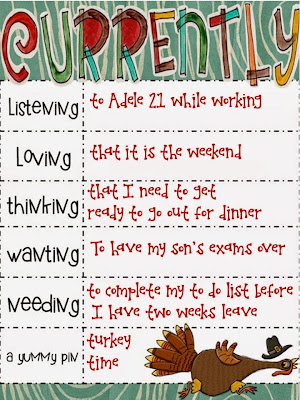 CURRENTLY
Listening
to Adele 21 while working
Loving
that it is the weekend
thinking
that I need to get
ready to go out for dinner
wanting
To have my son's exams over
needing
to complete my to do list before
I have two weeks leave
a yummy pin
turkey
time